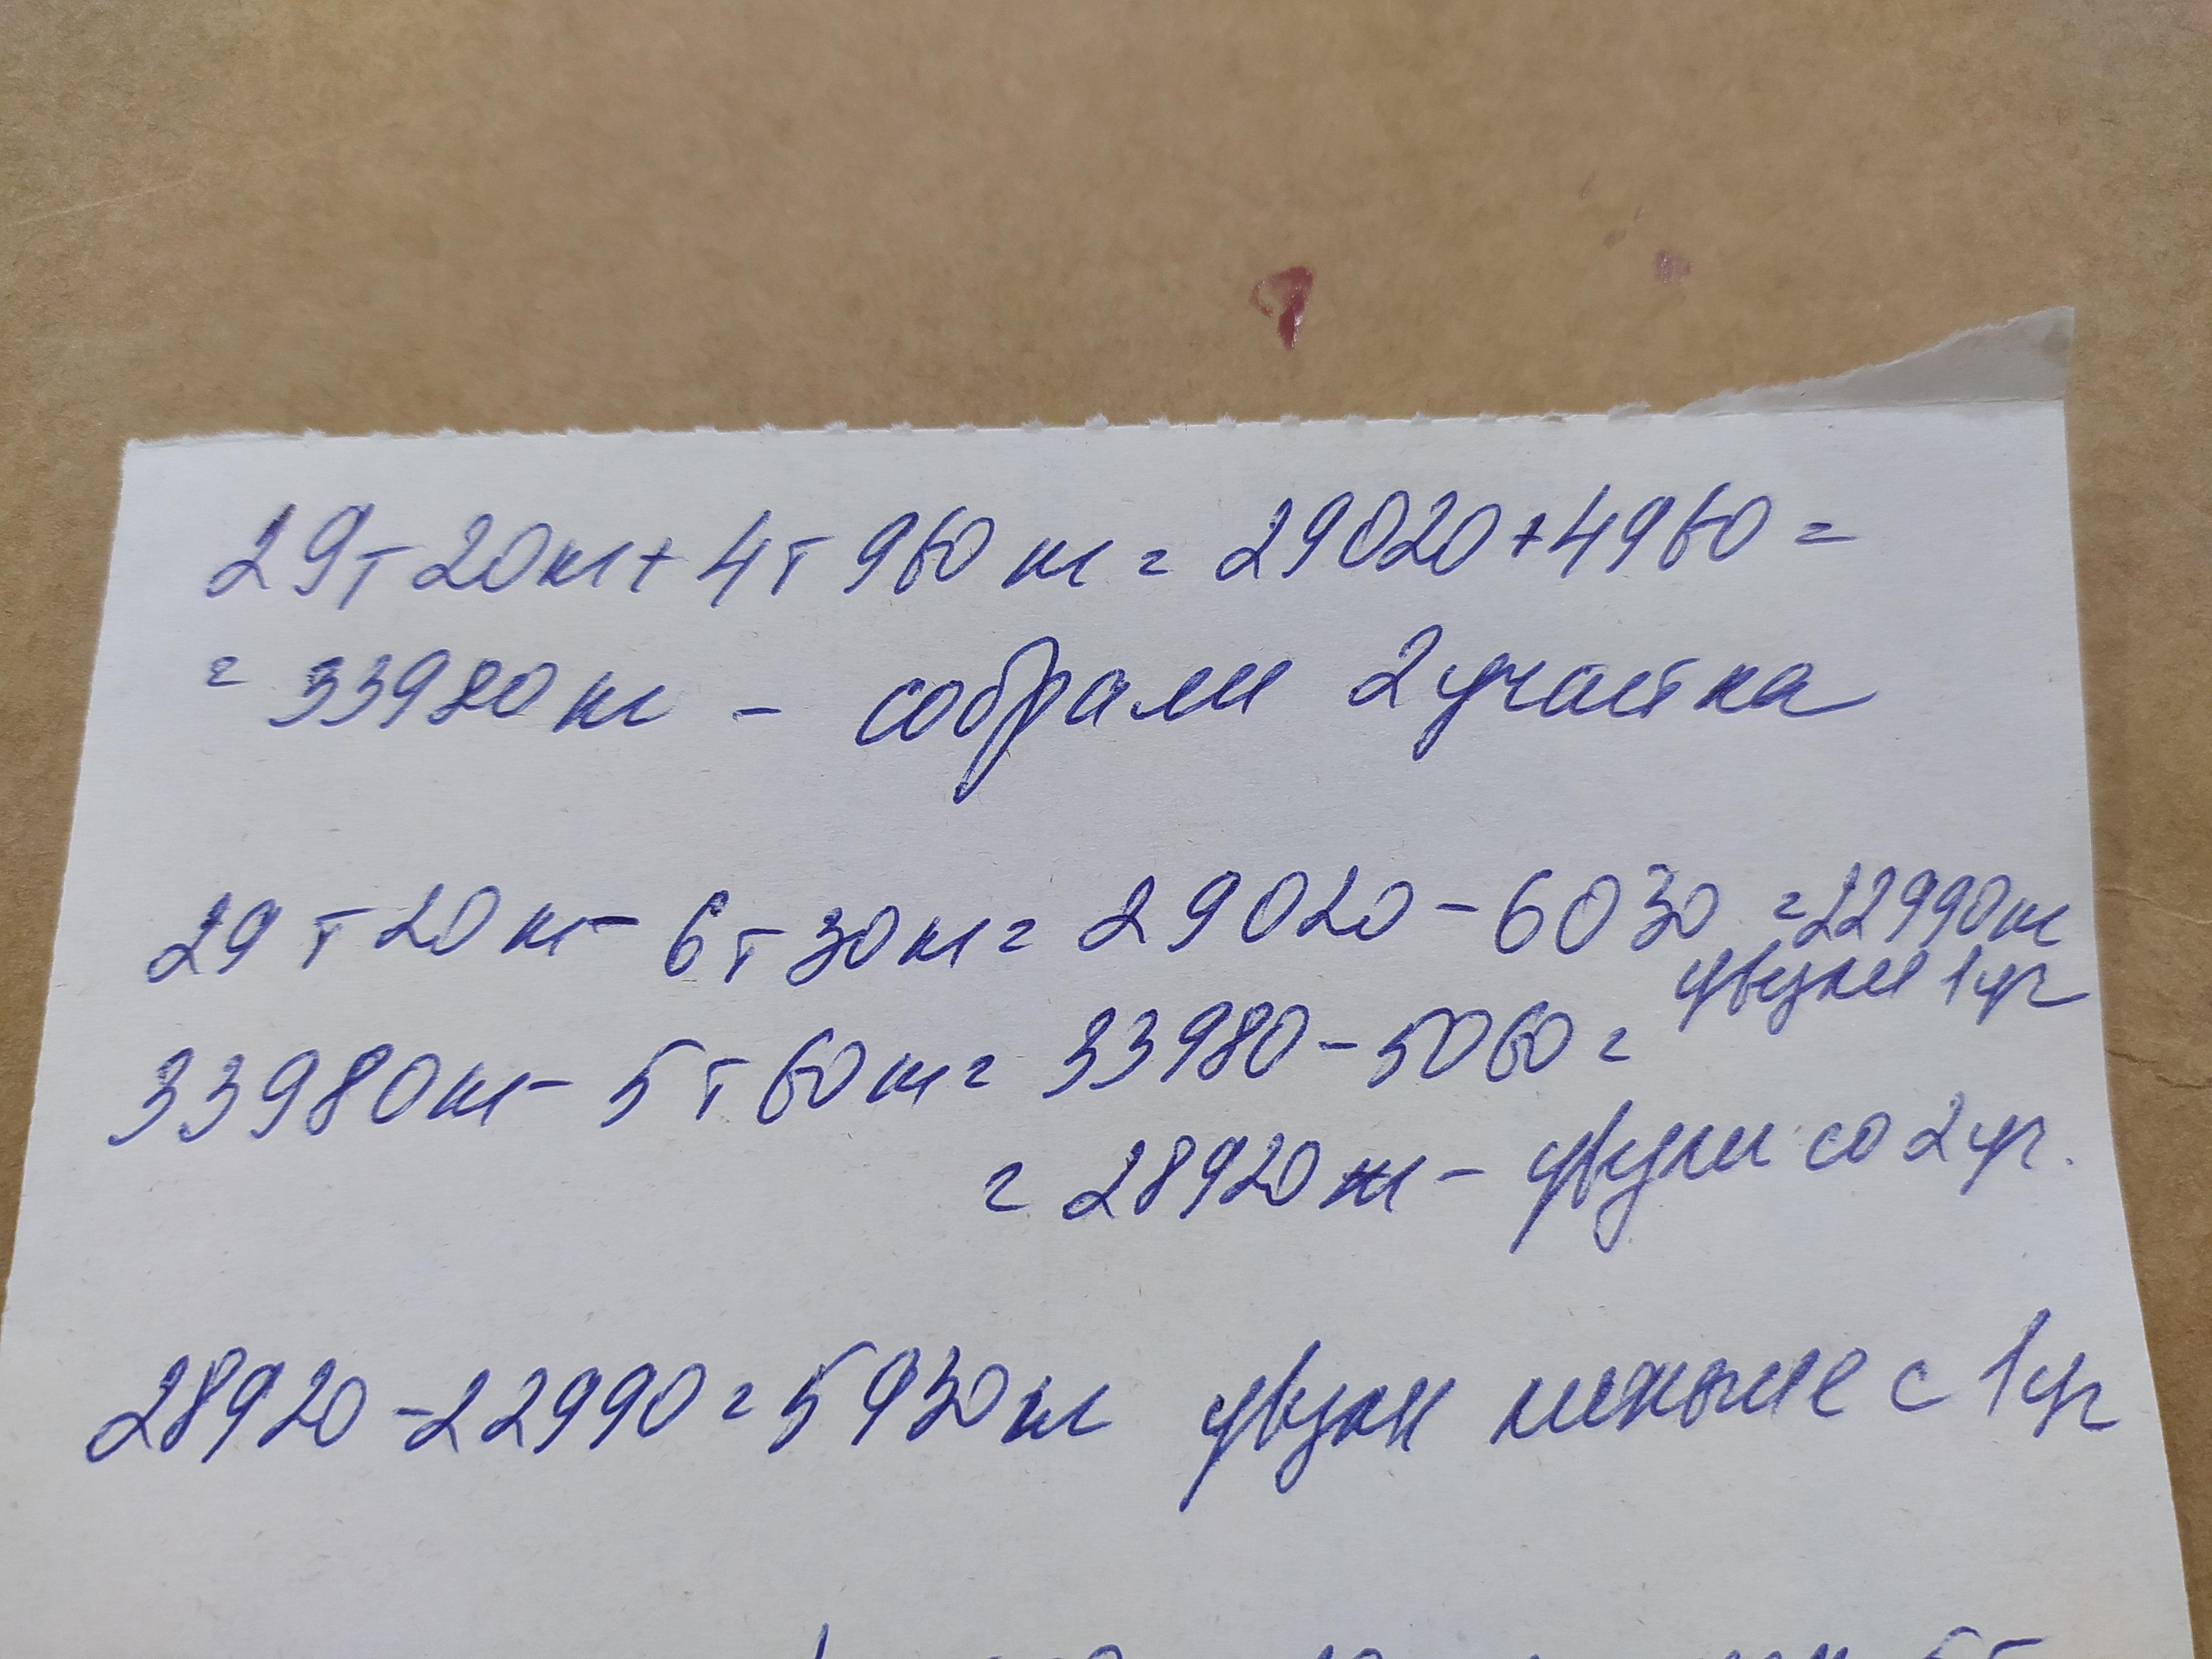 29т 20кг + 4т 960 кг = 29020 + 4960 =
= 33980 кг - собрали 2 участка
29 т 20 кг - 6т 30кг = 29020 - 6030 = 22990кг
увезли 1 уч
33980кг - 5т 60кг = 33980 - 5060 =
= 28920 кг - увезли со 2 уч.
28920 - 22990 = 5930кг увезли меньше с 1 уч